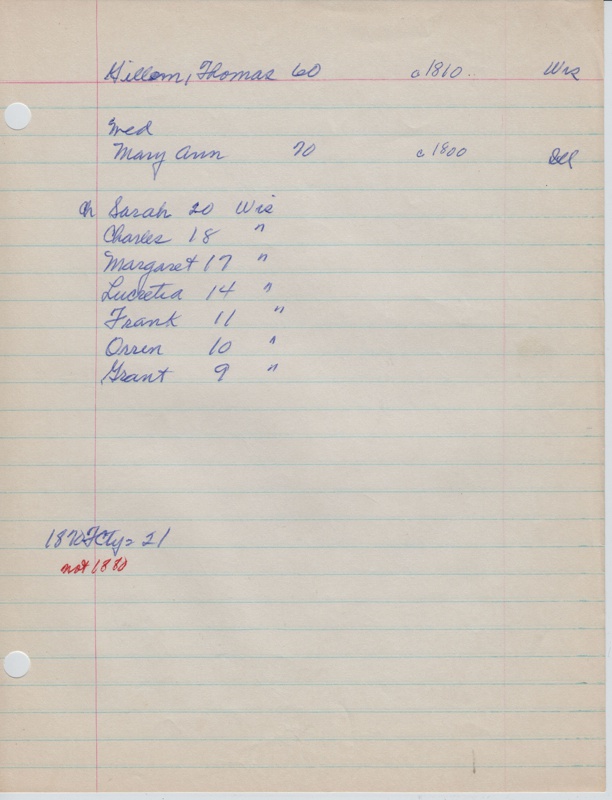 Gillom, Thomas 60 c1810.. Wis
Wed
Mary Ann 70 c1800 Ill
Ch Sarah 20 Wis
Charles 18 "
Margaret 17 "
Lucretia 14 "
Frank 11 "
Orren 10 "
Grant 9 "
1870 FCty = 21
not 1880